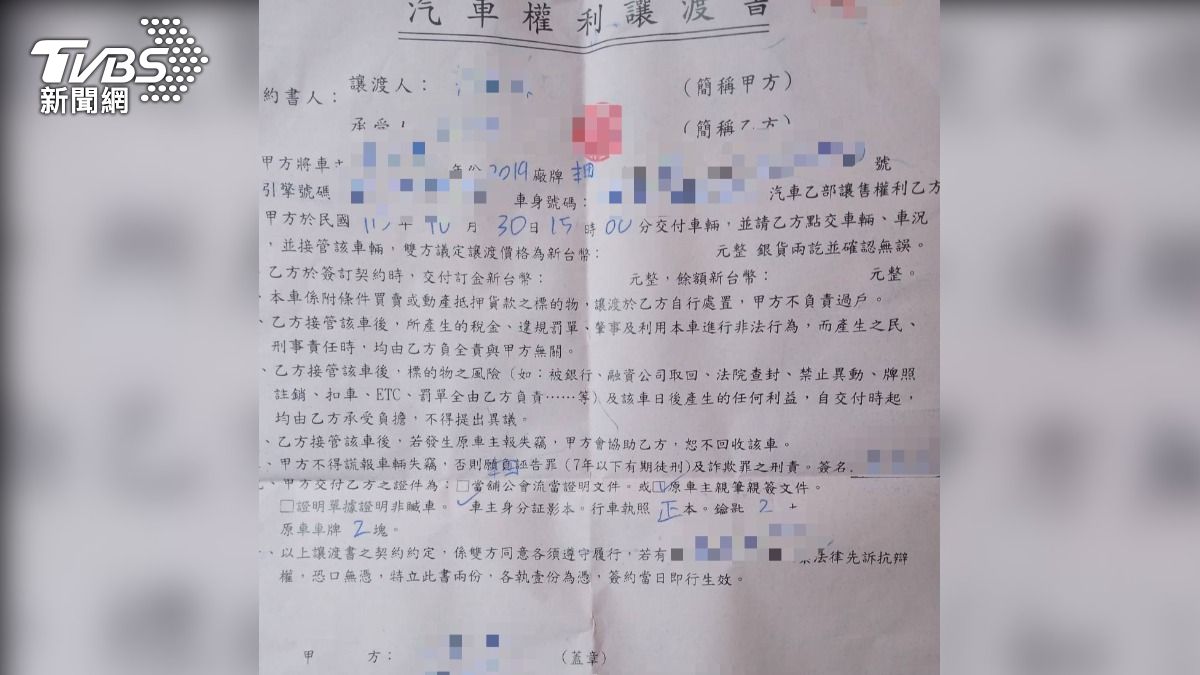 TVBS
新聞網
汽車權利讓渡書
讓渡人：
(簡稱甲方)
約書人：
(簡稱乙方)
甲方將車
2019 廠牌
號
引擎號碼
車身號碼：
汽車乙部讓售權利乙方
甲方於民國 月 30日 15時 00分交付車輛，並請乙方點交車輛、車況
，並接管該車輛，雙方議定讓渡價格為新台幣： 元整 銀貨兩訖並確認無誤。
乙方於簽訂契約時，交付訂金新台幣： 元整，餘額新台幣： 元整。
、本車係附條件買賣或動產抵押貸款之標的物，讓渡於乙方自行處置，甲方不負責過戶。
、乙方接管該車後，所產生的稅金、違規罰單、肇事及利用本車進行非法行為，而產生之民、
刑事責任時，均由乙方負全責與甲方無關。
、乙方接管該車後，標的物之風險（如：被銀行、融資公司取回、法院查封、禁止異動、牌照
註銷、扣車、ETC、罰單全由乙方負責……等）及該車日後產生的任何利益，自交付時起，
均由乙方承受負擔，不得提出異議。
、乙方接管該車後，若發生原車主報失竊，甲方會協助乙方，恕不回收該車。
、甲方不得謊報車輛失竊，否則願負誣告罪(7年以下有期徒刑)及詐欺罪之刑責。簽名
、甲方交付乙方之證件為：□當舖公會流當證明文件。或□原車主親筆親簽文件。
□證明單據證明非贓車。 車主身分証影本。行車執照 正本。鑰匙 2
原車車牌 2 塊。
、以上讓渡書之契約約定，係雙方同意各須遵守履行，若有 法律先訴抗辯
權，恐口無憑，特立此書兩份，各執壹份為憑，簽約當日即行生效。
甲 方：
(蓋章)